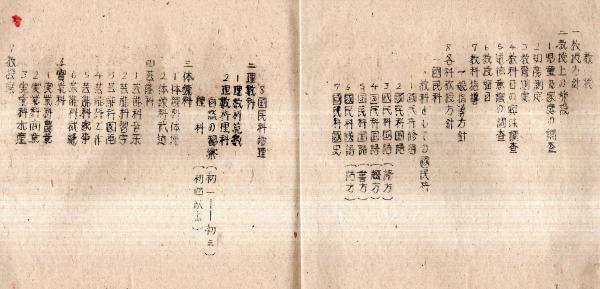 教授
一教授方針
二教授上の施設
1児童及家庭の調査
2知能測定
3教育測定
4教科目の興味調査
5道徳意識の調査
6教授細目
7教科指導
一般指導方針
8各科教授方針
一國民科
教科としての國民科
1國民科修身
2國民科國語
3國民科國語(綴方)
4國民科國語(綴方)
5國民科國語(書方)
6國民科國語(話方)
7國民科國史
8國民科地理
二理数科
1理数科算数
2理数科理科
自然の観察(初一——初三)
理科(初四以上)
三体錬科
1体錬科体操
2体錬科武道
四芸能科
1芸能科音楽
2芸能科習字
3芸能科図画
4芸能科工作
5芸能科家事
6芸能科裁縫
五實業科
1実業科農業
2実業科商業
3実業科水産
9教授案